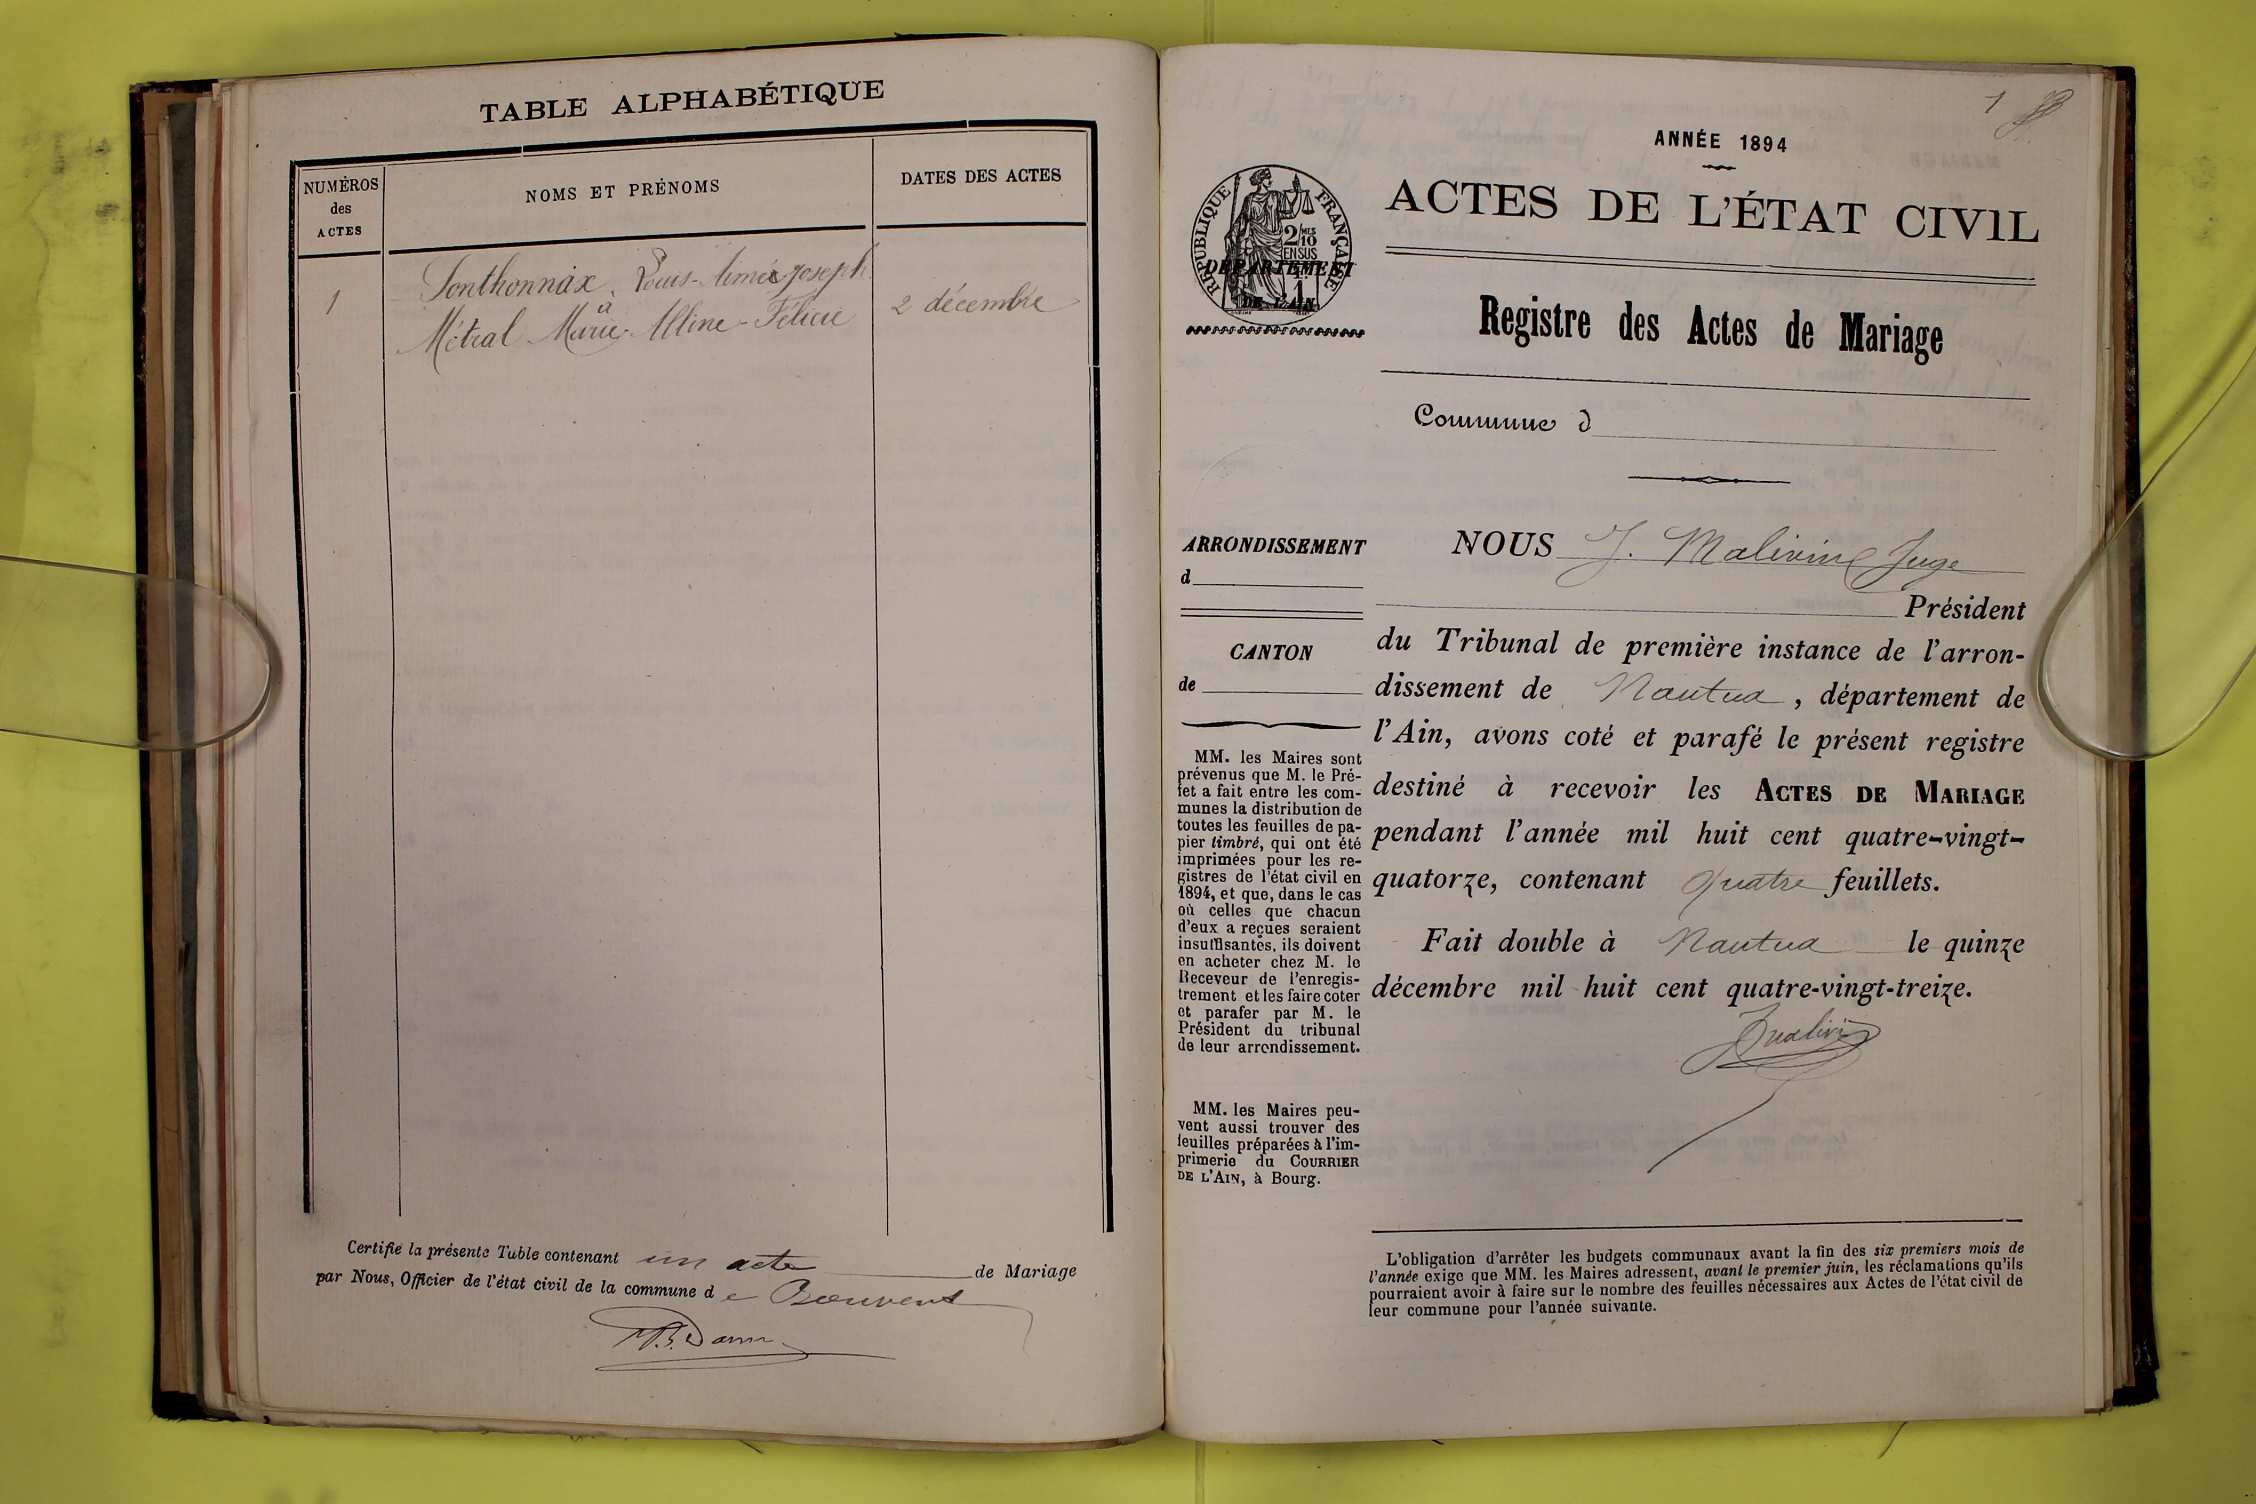 TABLE ALPHABÉTIQUE
NUMÉROS
des
ACTES
NOMS ET PRÉNOMS
DATES DES ACTES
1
Sonthonnax Louis-Aimé-Joseph
à
Métral Marie-Alline-Félicie
2 décembre
Certifie la présente Table contenant un acte de Mariage
par Nous, Officier de l'état civil de la commune de Bouvent
1
ANNÉE 1894
ACTES DE L'ÉTAT CIVIL
RÉPUBLIQUE FRANÇAISE
2/10
MES
EN SUS
DÉPARTEMENT
DE L'AIN
Registre des Actes de Mariage
Commune d
ARRONDISSEMENT
d
CANTON
de
MM. les Maires sont
prévenus que M. le Pré-
fet a fait entre les com-
munes la distribution de
toutes les feuilles de pa-
pier timbré, qui ont été
imprimées pour les re-
gistres de l'état civil en
1894, et que, dans le cas
où celles que chacun
d'eux a reçues seraient
insuffisantes, ils doivent
en acheter chez M. le
Receveur de l'enregis-
trement et les faire coter
et parafer par M. le
Président du tribunal
de leur arrondissement.
MM. les Maires peu-
vent aussi trouver des
feuilles préparées à l'im-
primerie du COURRIER
DE L'AIN, à Bourg.
NOUS J. Malivin Juge
Président
du Tribunal de première instance de l'arron-
dissement de Nantua, département de
l'Ain, avons coté et parafé le présent registre
destiné à recevoir les ACTES DE MARIAGE
pendant l'année mil huit cent quatre-vingt-
quatorze, contenant quatre feuillets.
Fait double à Nantua le quinze
décembre mil huit cent quatre-vingt-treize.
L'obligation d'arrêter les budgets communaux avant la fin des six premiers mois de
l'année exige que MM. les Maires adressent, avant le premier juin, les réclamations qu'ils
pourraient avoir à faire sur le nombre des feuilles nécessaires aux Actes de l'état civil de
leur commune pour l'année suivante.